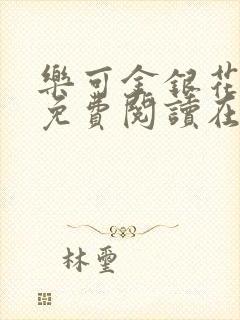 樂可金銀花
免費閱讀在
林璽